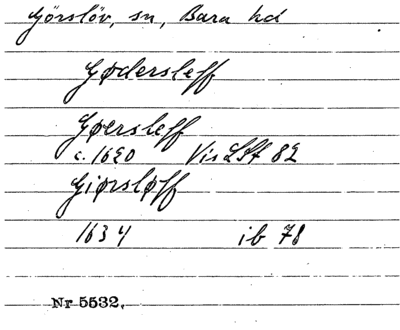 Görslöv, sn, Bara hd
Gødersleff
Gøersleff
c. 1620 Vis LSt 82
Giørsløff
1634 ib 78
Nr 5532.